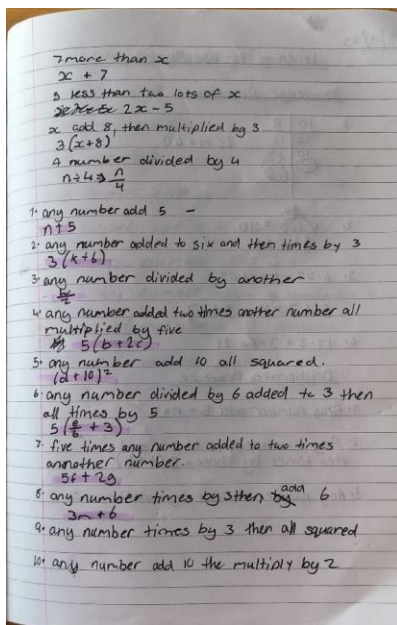 7 more than x
x + 7
5 less than two lots of x
2x - 5
x add 8, then multiplied by 3
3(x+8)
A number divided by 4
n÷4⇒ n/4
1. any number add 5 -
n+5
2. any number added to six and then times by 3
3(k+6)
3. any number divided by another
4. any number added two times another number all
multiplied by five
5(b+2c)
5. any number add 10 all squared.
(d+10)²
6. any number divided by 6 added to 3 then
all times by 5
5(e/6 + 3)
7. five times any number added to two times
annother number.
5f + 2g
8. any number times by 3 then add 6
3m + 6
9. any number times by 3 then all squared
10. any number add 10 the multiply by 2